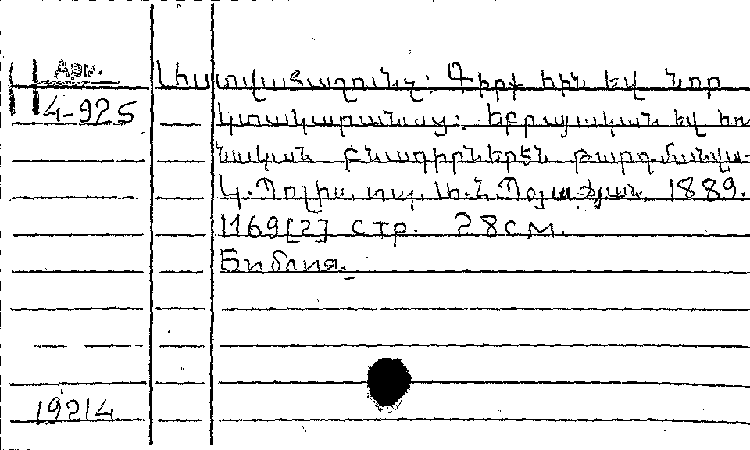 Арм.
4-925
Աստվածաշունչ: Գիրք հին եվ նոր
կտակարանաց: Եբրայական եվ հու
նական բնագիրներէն թարգմանվա-
Կ. Պոլիս, տպ. Ա. Հ. Պոյաճյան. 1889.
1169[2] стр. 28см.
Библия.
19214